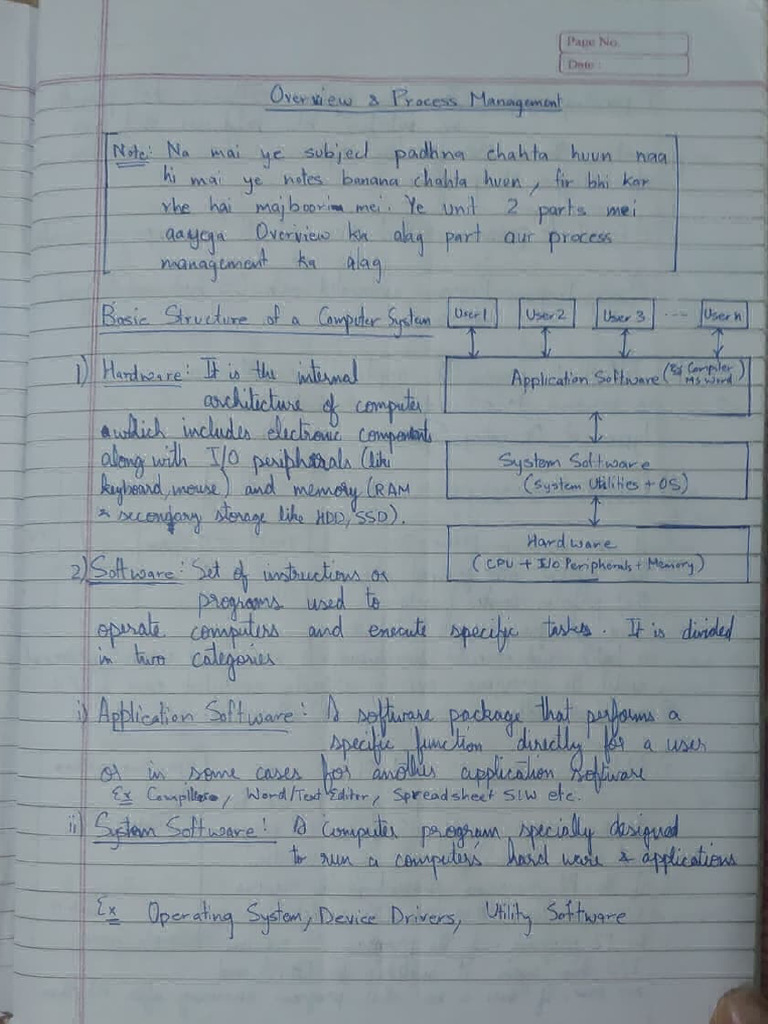 Page No.
Date :
Overview & Process Management
Note: Na mai ye subject padhna chahta huun naa
hi mai ye notes banana chahta huon, fir bhi kar
rhe hai majboorim mei. Ye unit 2 parts mei
aayega Overview ka alag part aur process
management ka alag
Basic Structure of a Computer System
User 1 User 2 User 3 ---- User n
Application Software (Ex Compiler
MS Word)
System Software
(System Utilities + OS)
Hardware
(CPU + I/O Peripherals + Memory)
1) Hardware: It is the internal
architecture of computer
which includes electronic components
along with I/O peripherals (like
keyboard, mouse) and memory (RAM
& secondary storage like HDD, SSD).
2) Software: Set of instructions or
programs used to
operate computers and execute specific tasks. It is divided
in two categories
i) Application Software: A software package that performs a
specific function directly for a user
or in some cases for another application software
Ex Compilers, Word/Text Editor, Spreadsheet S/W etc.
ii) System Software: A computer program specially designed
to run a computer's hard ware & applications
Ex Operating System, Device Drivers, Utility Software